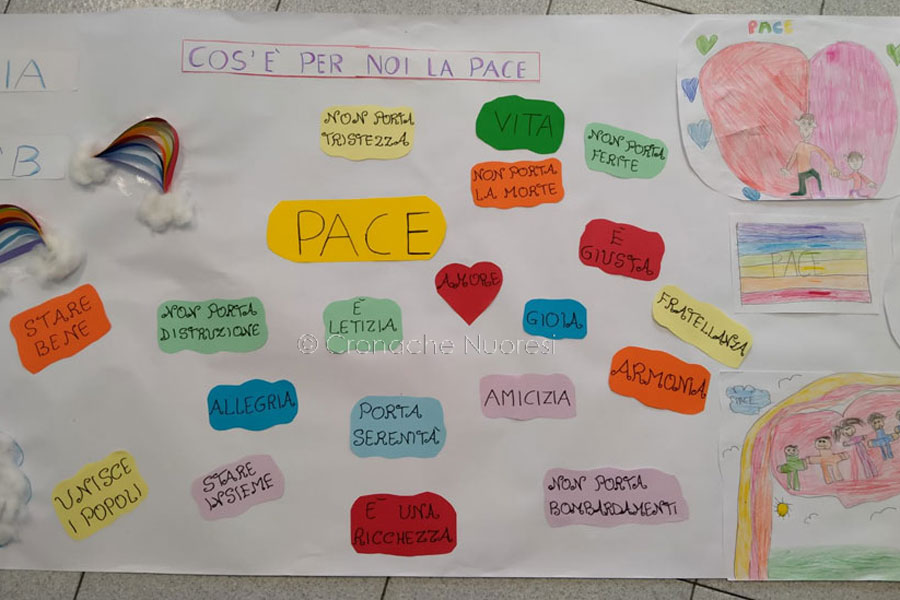 COS'È PER NOI LA PACE
PACE
IA
B
NON PORTA
TRISTEZZA
VITA
NON PORTA
FERITE
NON PORTA
LA MORTE
PACE
È
GIUSTA
PACE
AMORE
STARE
BENE
NON PORTA
DISTRUZIONE
È
LETIZIA
GIOIA
FRATELLANZA
© Cronache Nuoresi
ARMONIA
ALLEGRIA
PORTA
SERENITÀ
AMICIZIA
PACE
UNISCE
I POPOLI
STARE
INSIEME
È UNA
RICCHEZZA
NON PORTA
BOMBARDAMENTI